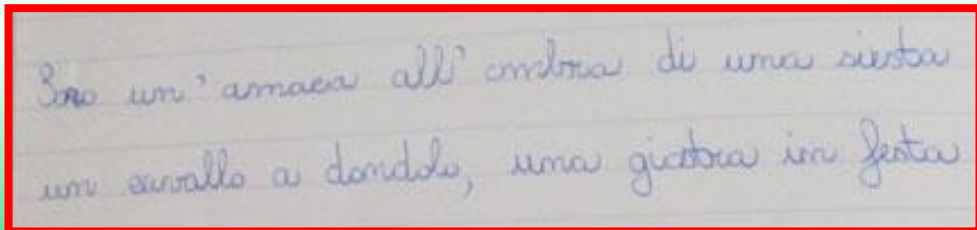 Sono un' amaca all' ombra di una siesta
un cavallo a dondolo, una giostra in festa